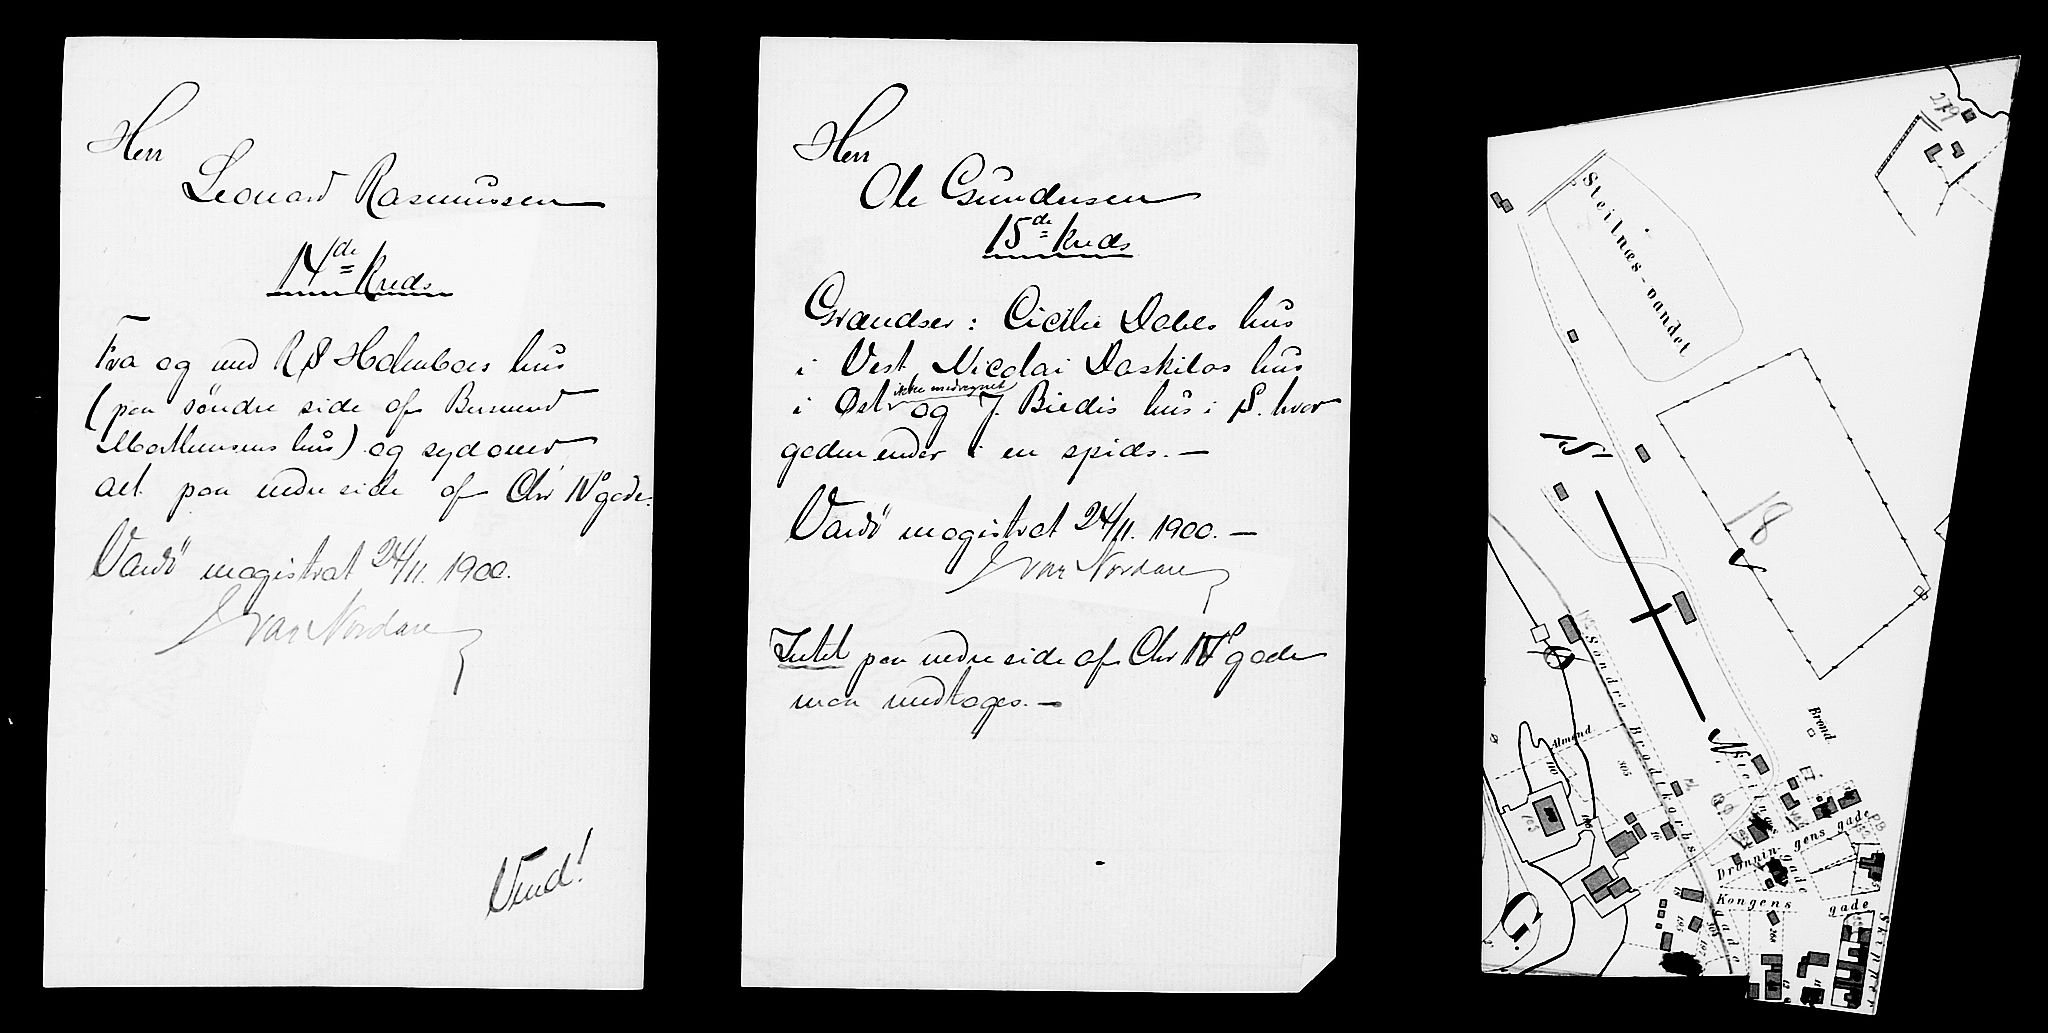 Herr
Leonard Rasmussen
14de Kreds
Fra og med R S Holmboes hus
(paa søndre side af Bernend
Morthensens hus) og sydover
alt paa nedre side af Chr IVs gade.
Vardö magistrat 24/11. 1900.
J van Nordam
Vend!
Herr
Ole Gundersen
15de Kreds
Grændser: Cicilie Dahls hus
i Vest Nicolai Daskilas hus
ikke medregnet
i Øst og J. Biedis hus i S. hvor
gaden ender i en spids. —
Vardö magistrat 24/11. 1900. —
J van Nordam
Intet paa nedre side af Chr IVs gade
maa medtages. —
279
Steilnæs-vandet
S
18
Søndre Brodtkorbs gade
N
Brønd
Almend
110
305
103
Steilnæs gade
Dronningens gade
Kongens gade
Skipper
268
G.